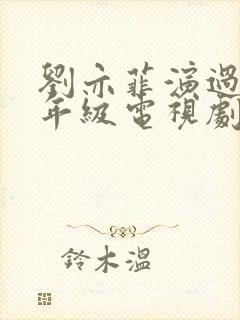 劉亦菲演過
年級電視劇
鈴木溫